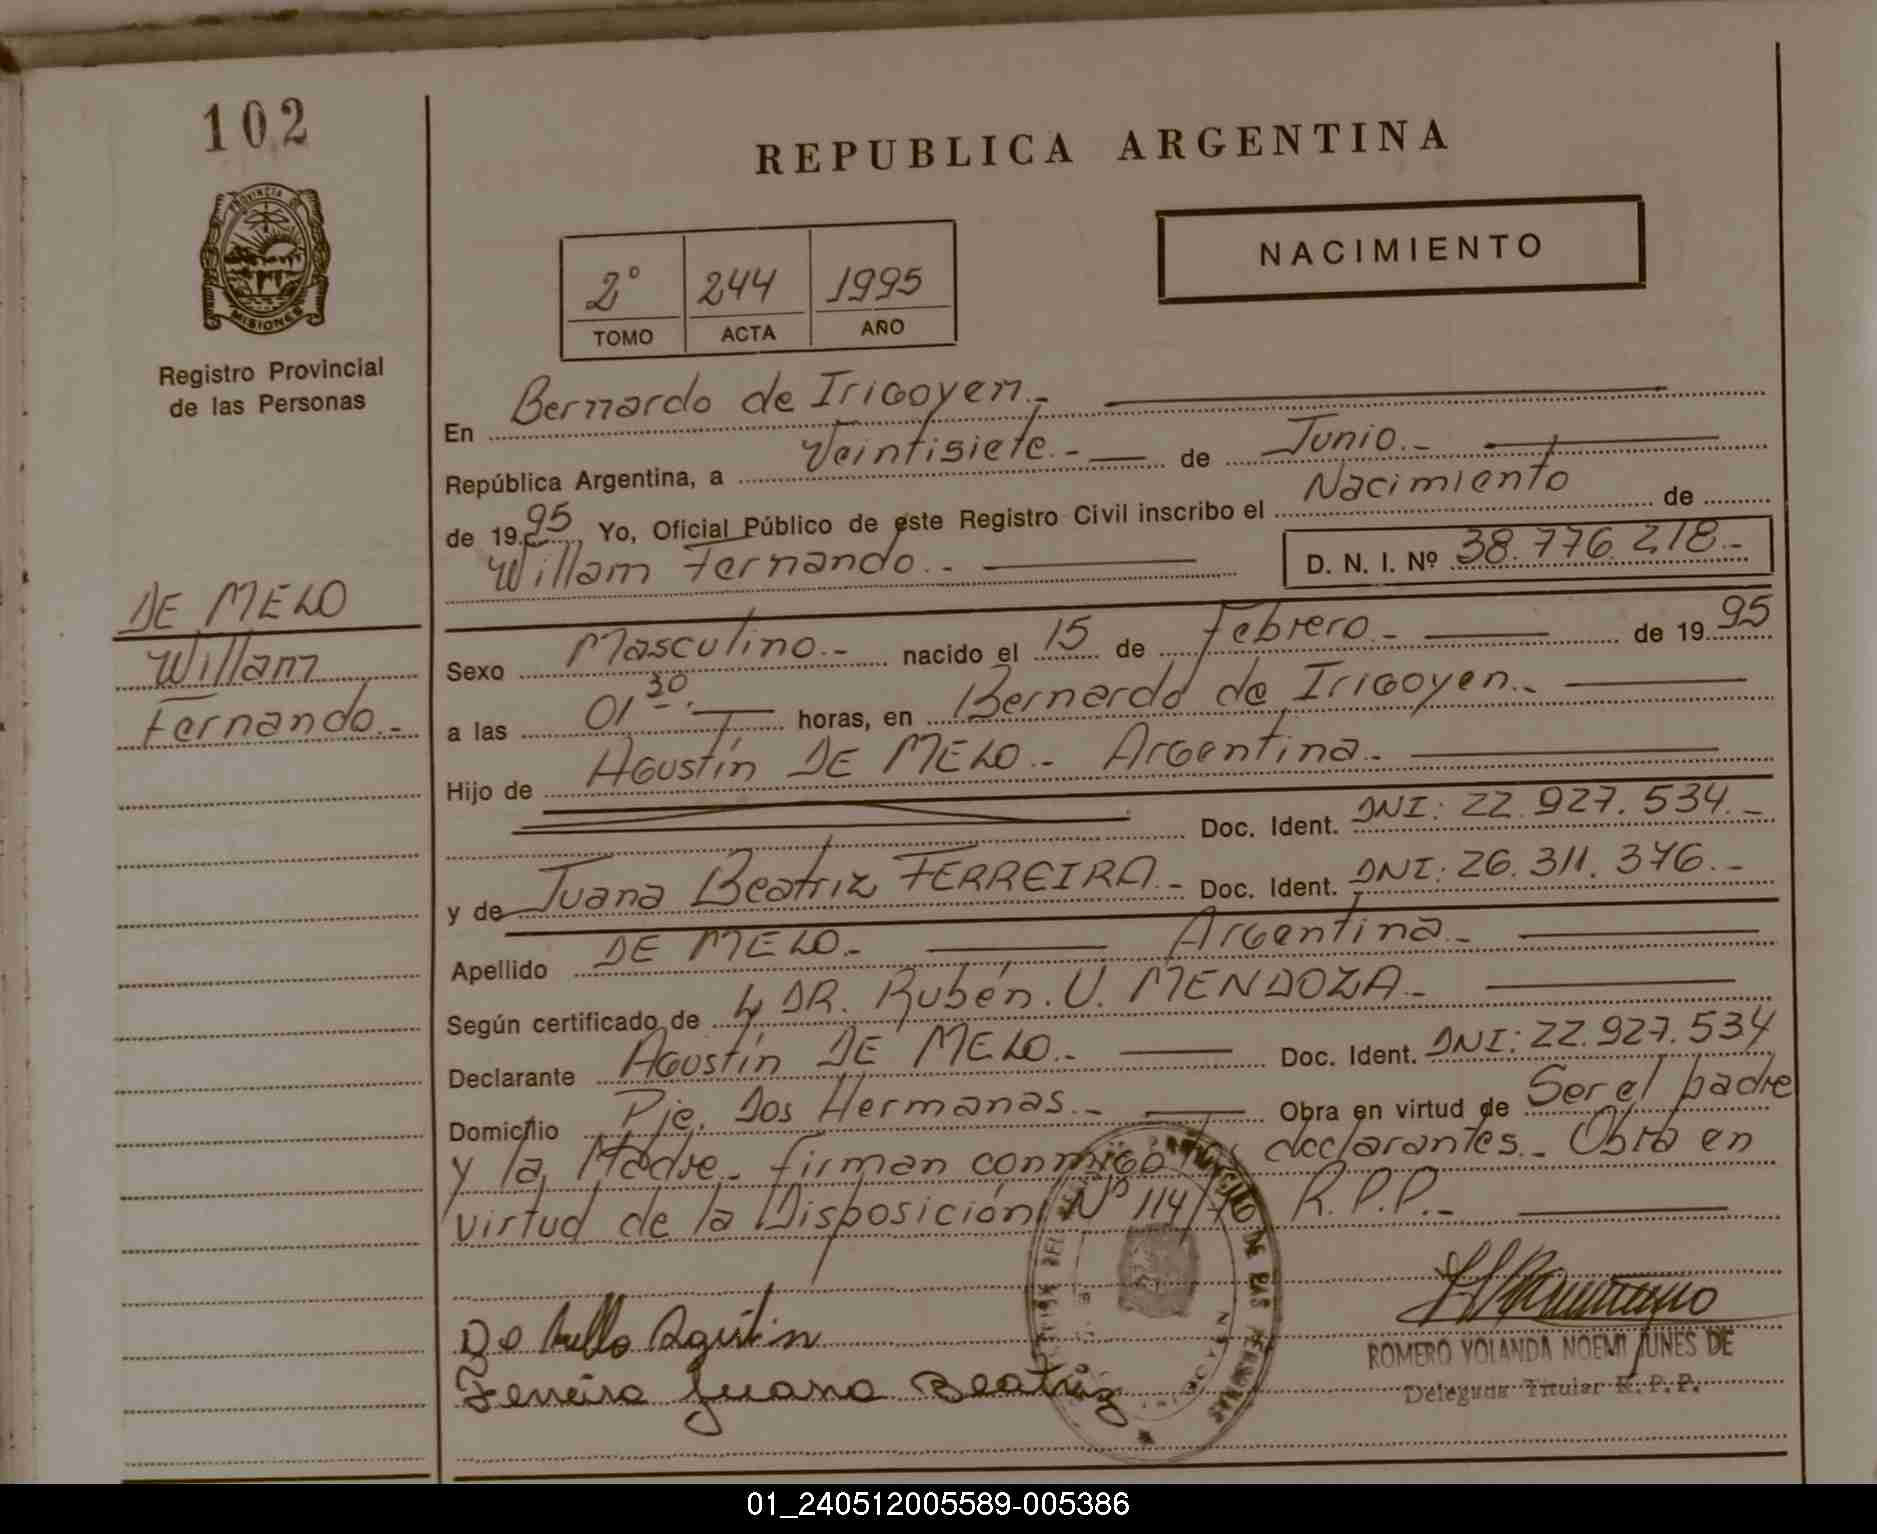 102
REPUBLICA ARGENTINA
PROVINCIA DE
MISIONES
NACIMIENTO
2° 244 1995
TOMO ACTA AÑO
Registro Provincial
de las Personas
En Bernardo de Irigoyen.-
República Argentina, a Veintisiete.- de Junio.-
de 1995 Yo, Oficial Público de este Registro Civil inscribo el Nacimiento de
Willam Fernando.- D. N. I. Nº 38.776.218.-
DE MELO
Willam
Fernando.-
Sexo Masculino.- nacido el 15 de Febrero.- de 1995
a las 01 30.- horas, en Bernardo de Irigoyen.-
Hijo de Agustín DE MELO.- Argentina.-
Doc. Ident. DNI: 22.927.534.-
y de Juana Beatriz FERREIRA.- Doc. Ident. DNI: 26.311.376.-
Apellido DE MELO.- Argentina.-
Según certificado de DR. Rubén. U. MENDOZA.-
Declarante Agustín DE MELO.- Doc. Ident. DNI: 22.927.534
Domicilio Pje. Dos Hermanas.- Obra en virtud de Ser el padre
y la Madre.- firman conmigo declarantes.- Obra en
virtud de la Disposición Nº 114/ R.P.P.-
De Mello Agustin
Ferreira Juana Beatriz
ROMERO YOLANDA NOEMI JUNES DE
Delegada Titular R.P.P.
01_240512005589-005386